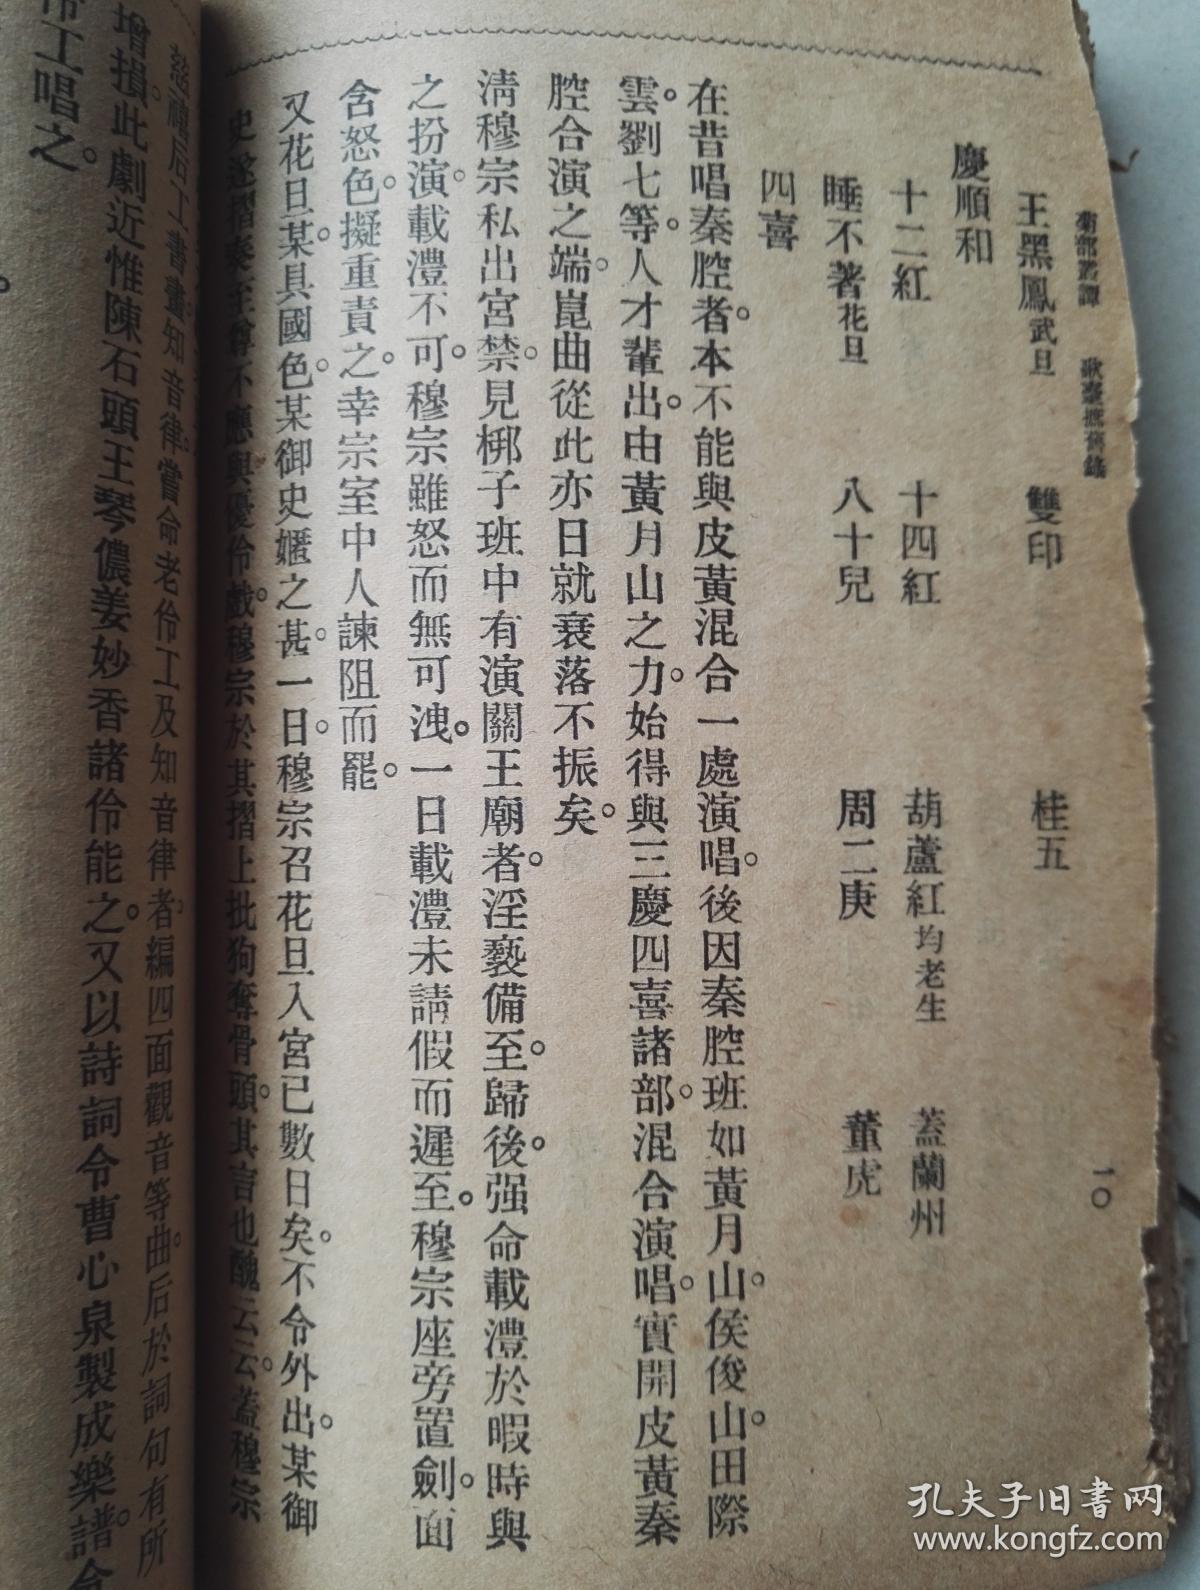 菊部叢譚　歌臺摭舊錄　一〇
王黑鳳武旦　雙印　桂五
慶順和
十二紅　十四紅　葫蘆紅均老生　蓋蘭州
睡不著花旦　八十兒　周二庚　董虎
四喜
在昔唱秦腔者。本不能與皮黃混合一處演唱。後因秦腔班如黃月山。侯俊山。田際
雲。劉七等。人才輩出。由黃月山之力。始得與三慶四喜諸部。混合演唱。實開皮黃秦
腔合演之端。崑曲從此亦日就衰落不振矣。
淸穆宗私出宮禁。見梆子班中有演關王廟者。淫褻備至。歸後。强命載澧於暇時與
之扮演。載澧不可。穆宗雖怒而無可洩。一日載澧未請假而遲至。穆宗座旁置劍。面
含怒色。擬重責之。幸宗室中人諫阻而罷。
又花旦某。具國色。某御史嫟之甚。一日。穆宗召花旦入宮已數日矣。不令外出。某御
史遂摺奏至尊不應與優伶戲。穆宗於其摺上批狗奪骨頭。其言也醜云云。蓋穆宗
慈禧后工書畫。知音律。嘗命老伶工及知音律者。編四面觀音等曲。后於詞句有所
增損。此劇近惟陳石頭王琴儂姜妙香諸伶能之。又以詩詞令曹心泉製成樂譜。令
伶工唱之。
孔夫子旧書网
www.kongfz.com